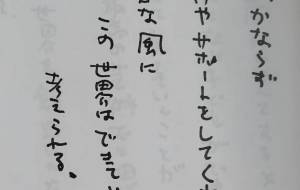 かならず
やサポートをしてくれ
な風に
この世界はできて
考えられる。